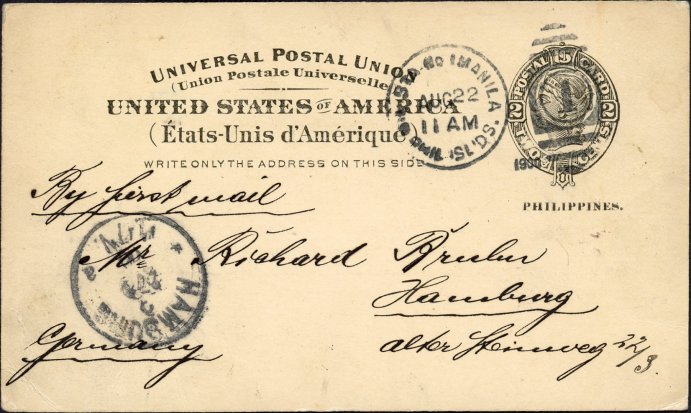 UNIVERSAL POSTAL UNION
(Union Postale Universelle)
UNITED STATES OF AMERICA
(États-Unis d'Amérique)
WRITE ONLY THE ADDRESS ON THIS SIDE
STA. No 1 MANILA
AUG 22
11 AM
PHIL. ISL'DS.
POSTAL CARD
2 2
TWO CENTS
PHILIPPINES.
By first mail
Mr Richard
Hamburg
Germany
alter Steinweg 22/3.
HAMBURG